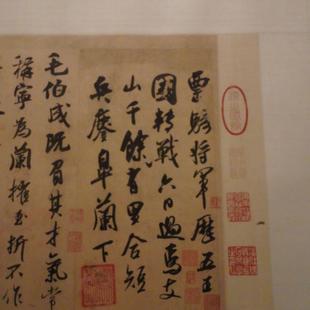 票騎将軍歷五王
國轉戰六日過焉支
山千餘有里合短
兵鏖皋蘭下
毛伯成既負其才氣常
稱寧為蘭摧玉折不作